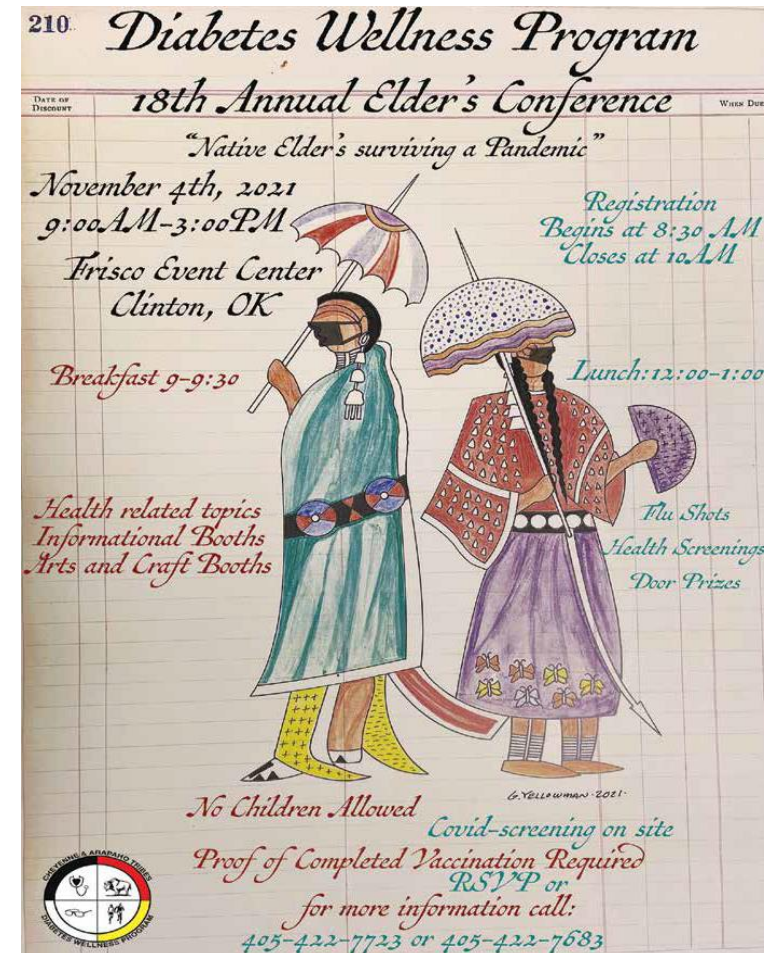 210
Diabetes Wellness Program
DATE OF
DISCOUNT
18th Annual Elder's Conference
WHEN DUE
"Native Elder's surviving a Pandemic"
November 4th, 2021
9:00AM-3:00PM
Registration
Begins at 8:30 AM
Closes at 10AM
Frisco Event Center
Clinton, OK
Breakfast 9-9:30
Lunch:12:00-1:00
Health related topics
Informational Booths
Arts and Craft Booths
Flu Shots
Health Screenings
Door Prizes
G. YELLOWMAN · 2021 ·
No Children Allowed
Covid-screening on site
Proof of Completed Vaccination Required
RSVP or
for more information call:
405-422-7723 or 405-422-7683
CHEYENNE & ARAPAHO TRIBES
DIABETES WELLNESS PROGRAM